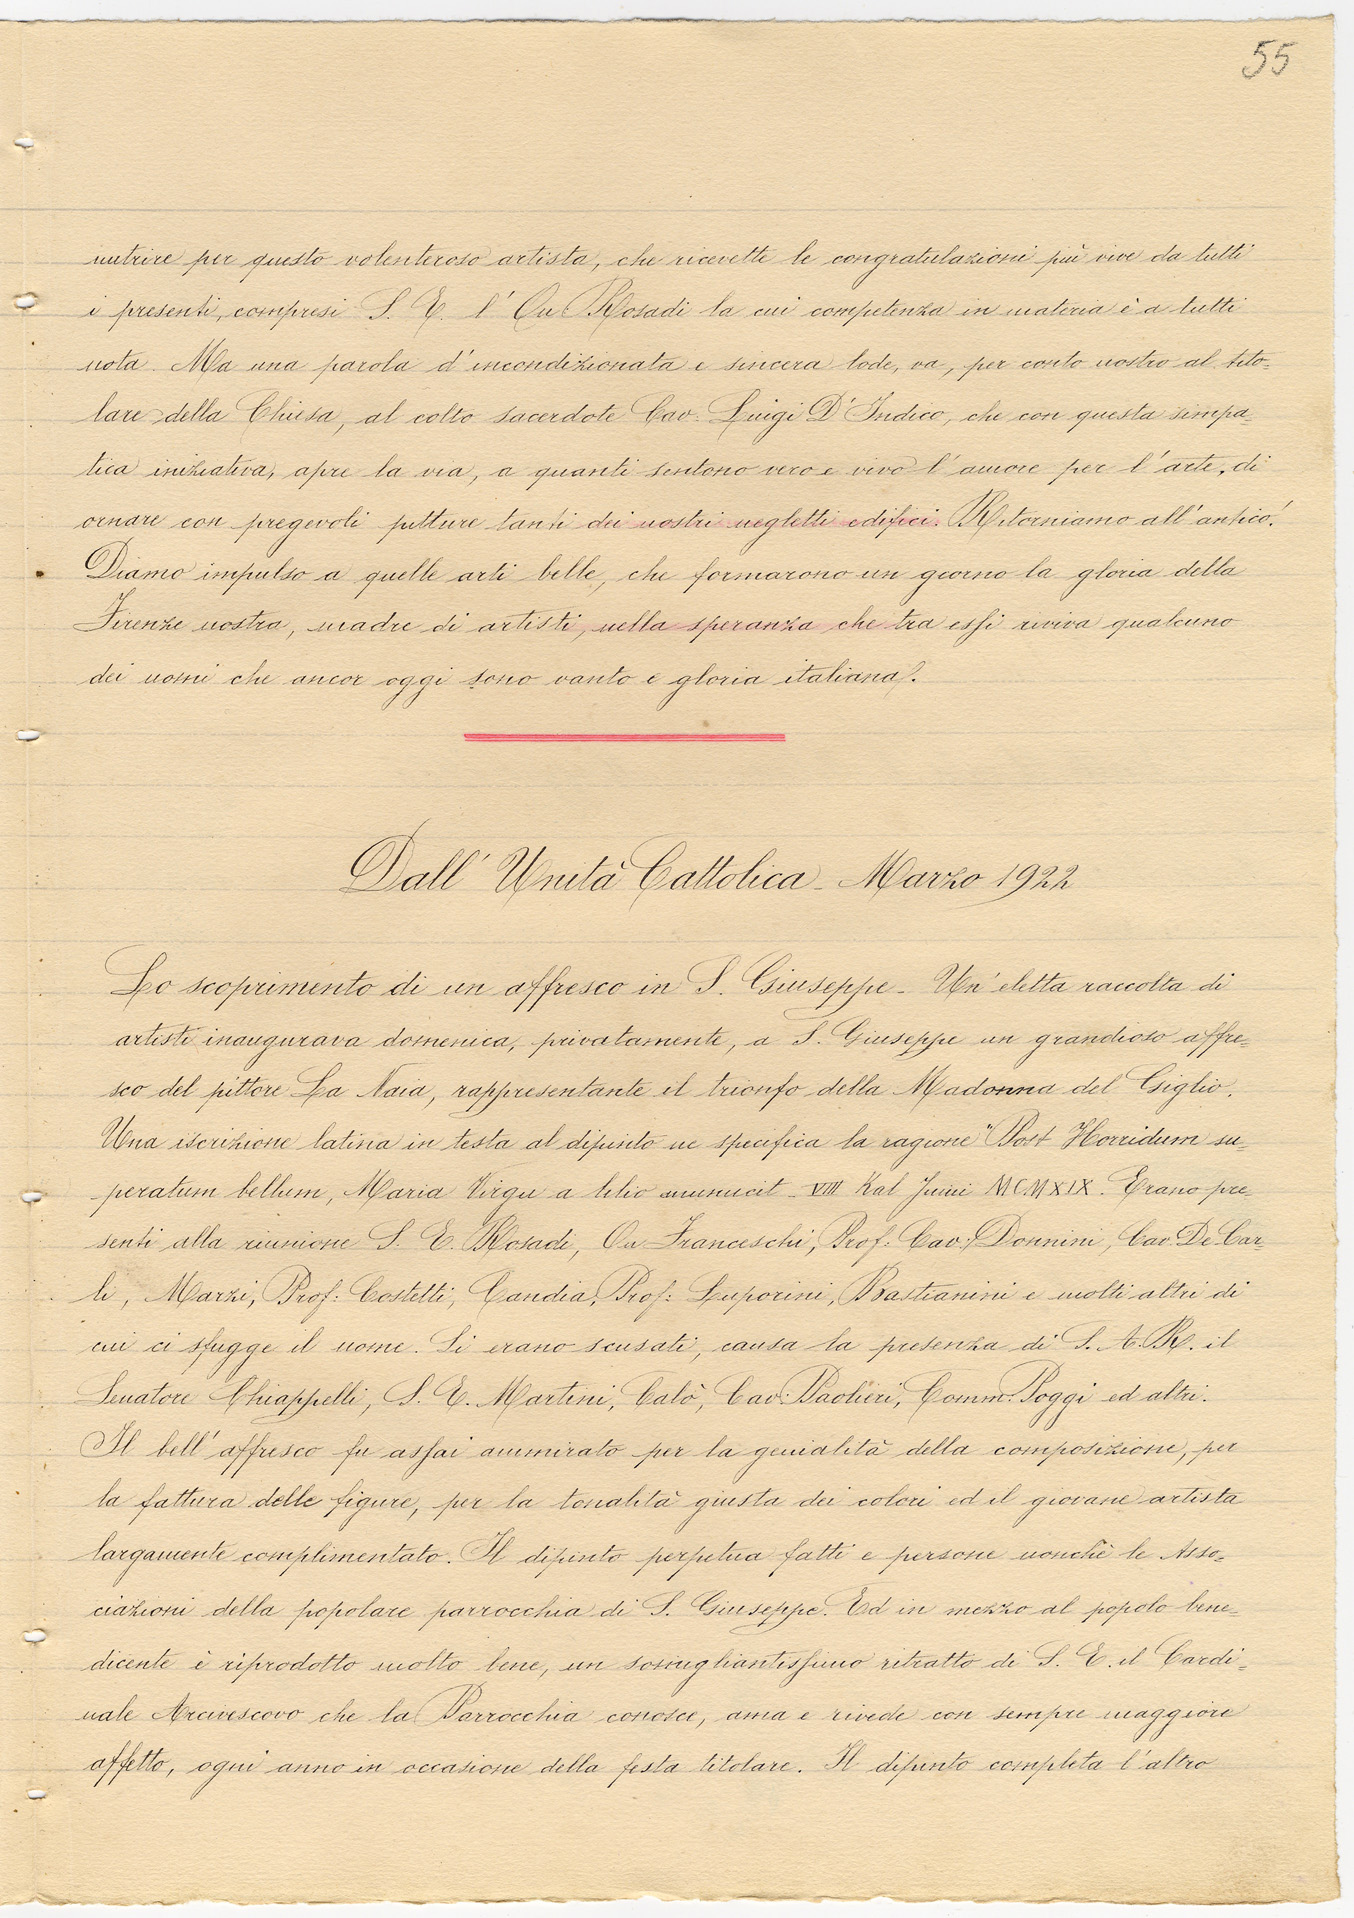 55
nutrire per questo volenteroso artista, che ricevette le congratulazioni più vive da tutti
i presenti, compresi S. E. l' On Rosadi la cui competenza in materia è a tutti
nota. Ma una parola d'incondizionata e sincera lode, va, per conto nostro al tito=
lare della Chiesa, al colto sacerdote Cav. Luigi D'Indico, che con questa simpa=
tica iniziativa, apre la via, a quanti sentono vero e vivo l'amore per l'arte, di
ornare con pregevoli pitture tanti dei nostri negletti edifici. Ritorniamo all'antico!
Diamo impulso a quelle arti belle, che formarono un giorno la gloria della
Firenze nostra, madre di artisti, nella speranza che tra essi riviva qualcuno
dei nomi che ancor oggi sono vanto e gloria italiana.
Dall' Unità Cattolica - Marzo 1922
Lo scoprimento di un affresco in S. Giuseppe - Un'eletta raccolta di
artisti inaugurava domenica, privatamente, a S. Giuseppe un grandioso affre=
sco del pittore La Naia, rappresentante il trionfo della Madonna del Giglio.
Una iscrizione latina in testa al dipinto ne specifica la ragione "Post Horridum su=
peratum bellum, Maria Virgu a lilio munucit - VIII Kal Junii MCMXIX. Erano pre=
senti alla riunione S. E. Rosadi, On Franceschi, Prof: Cav: Donnini, Cav. De Car=
li, Marzi, Prof: Costetti, Candia, Prof: Luporini, Bastianini e molti altri di
cui ci sfugge il nome. Si erano scusati, causa la presenza di S. A. R. il
Senatore Chiappelli, S. E. Martini, Calò, Cav: Paolieri, Comm: Poggi ed altri.
Il bell'affresco fu assai ammirato per la genialità della composizione, per
la fattura delle figure, per la tonalità giusta dei colori ed il giovane artista
largamente complimentato. Il dipinto perpetua fatti e persone nonchè le Asso=
ciazioni della popolare parrocchia di S. Giuseppe. Ed in mezzo al popolo bene=
dicente è riprodotto molto bene, un somigliantissimo ritratto di S. E. il Cardi=
nale Arcivescovo che la Parrocchia conosce, ama e rivede con sempre maggiore
affetto, ogni anno in occasione della festa titolare. Il dipinto completa l'altro